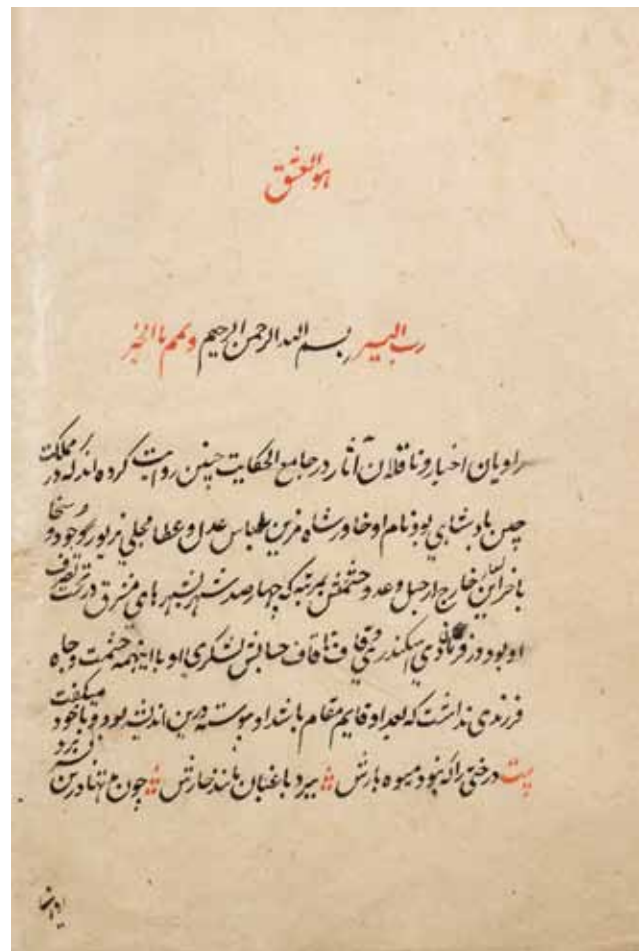 هو العشق
رب الیسر بسم الله الرحمن الرحیم وتمم بالخیر
راویان اخبار و ناقلان آثار در جامع الحکایت چنین روایت کرده اند که در مملکت
چین پادشاهی بود نام او خاور شاه مزین بلباس عدل و عطا محلی بزیور جود و سخا
با خزاین خارج از حیل وعد و حشمتش بمرتبه که چهار صد شهر از شهرهای مشرق در تحت تصرف
او بود و ز فرمان دهی اسکندری قاف تا قاف حسابش لشکری او با اینهمه حشمت و جاه
فرزندی نداشت که بعد او قایم مقام باشد او پیوسته درین اندیشه بود و با خود میکفت
بیت درختی را که نبود میوه بارش ببرد باغبان مانند خارش چون تنها درین